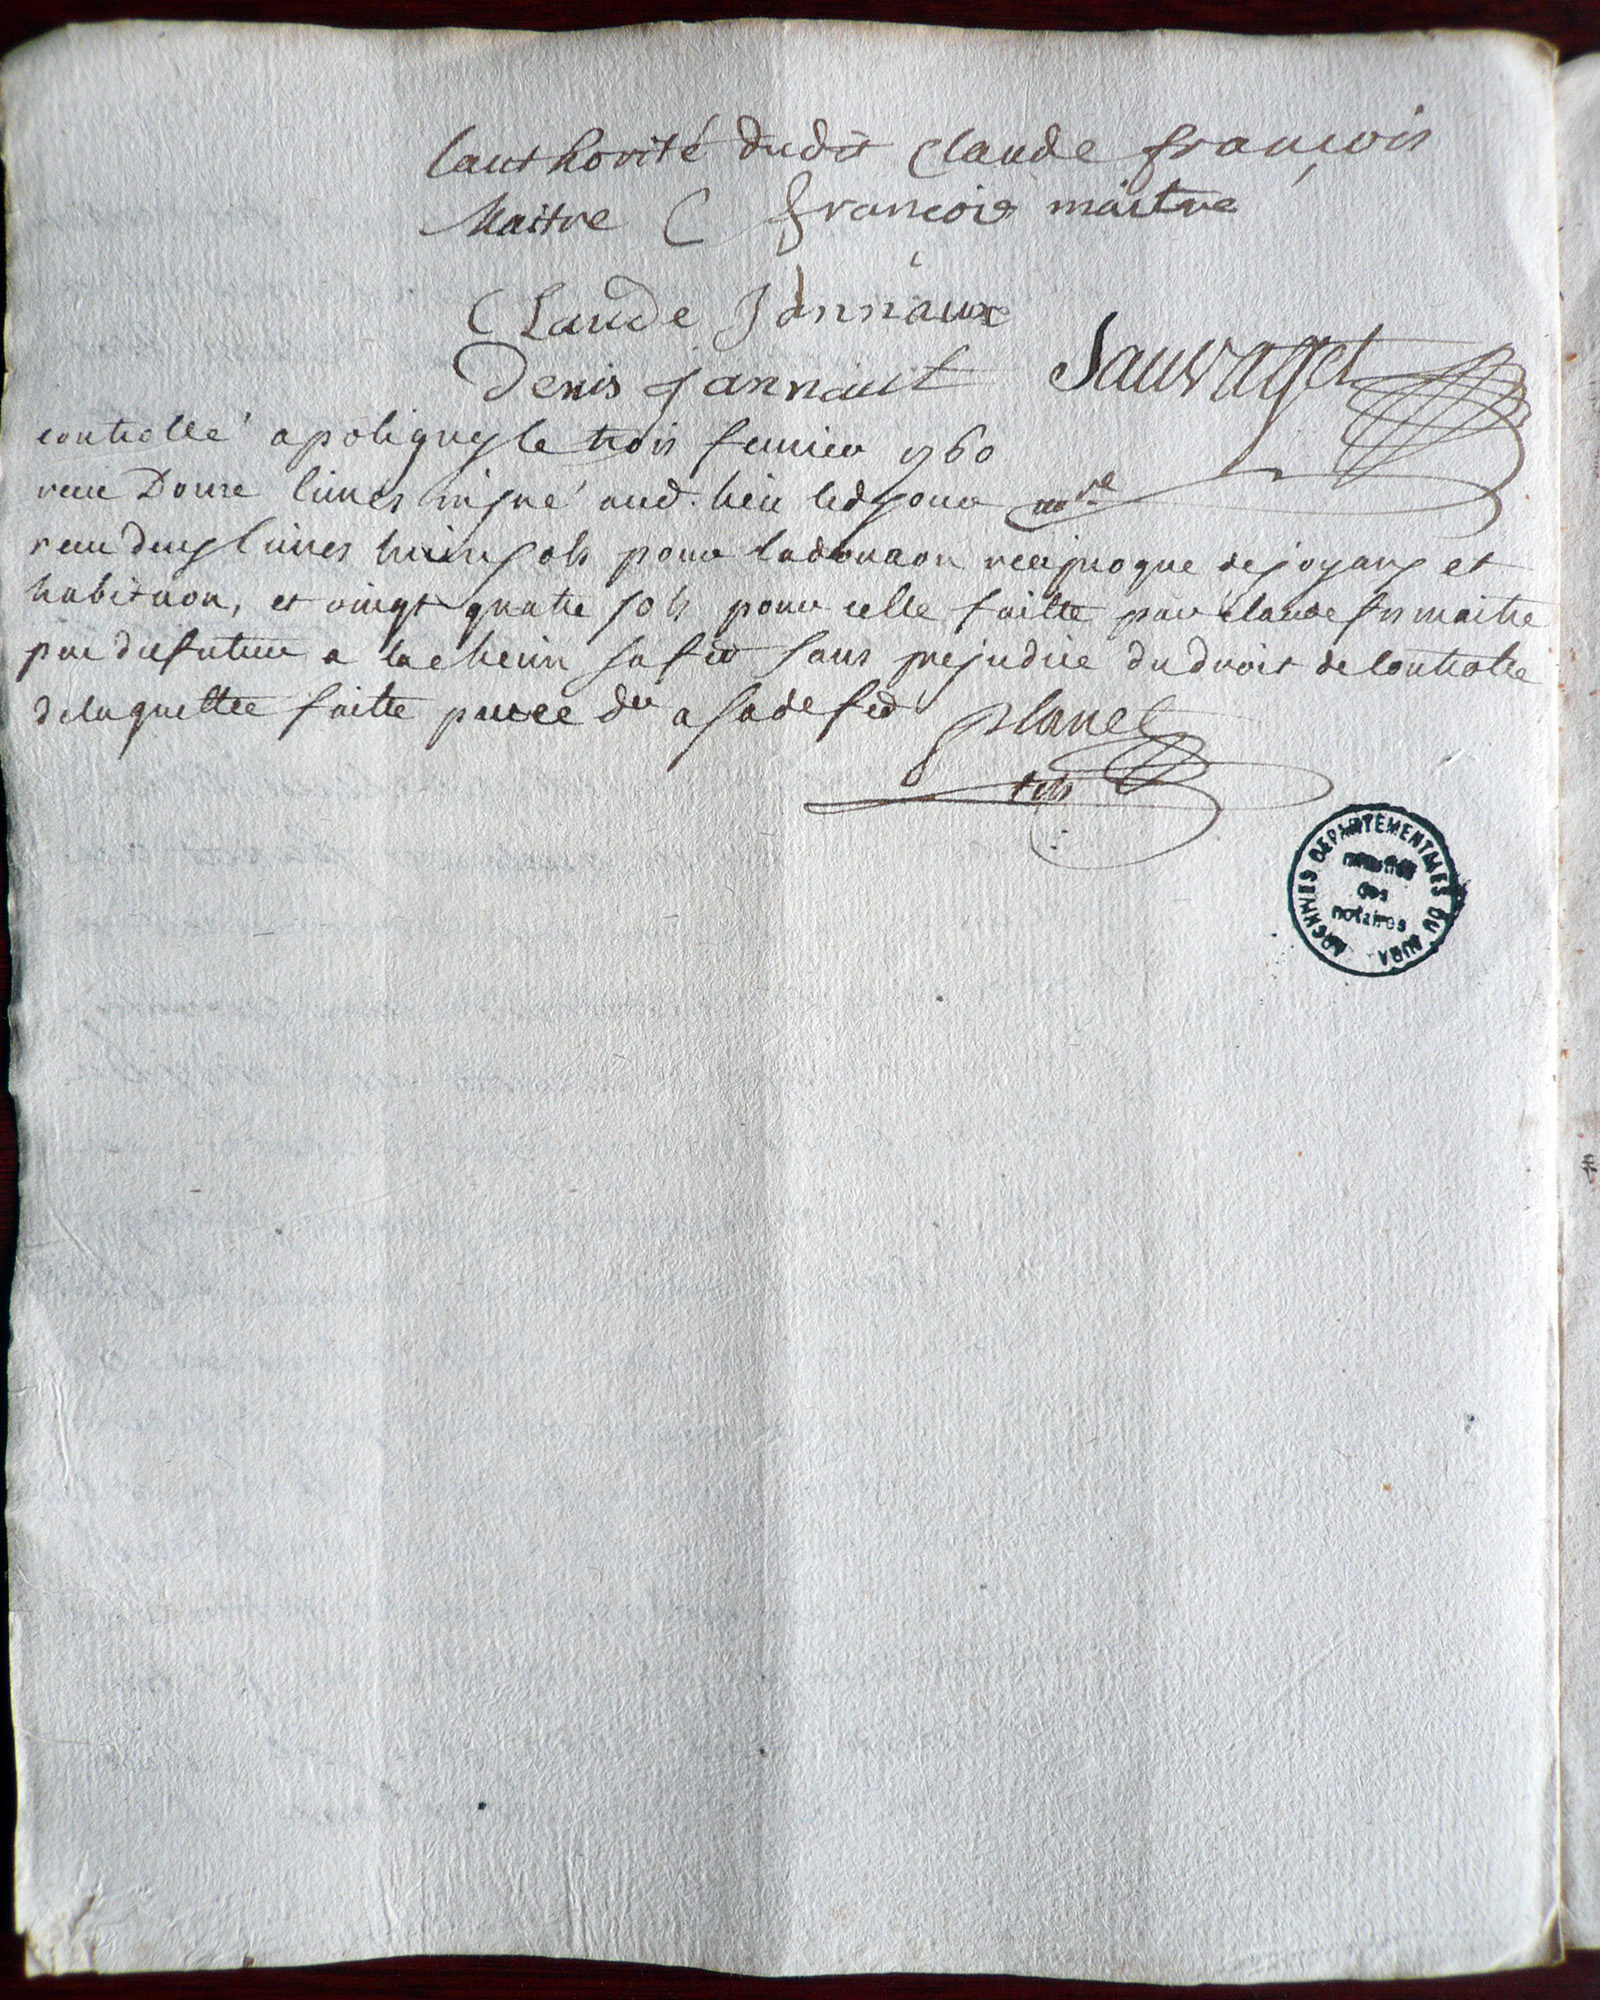 lauthorité dudit Claude françois
Maitre C françois maitre
Claude Jannaux
Denis Jannaut Sauvaget
controllé a poligny le trois fevrier 1760
receu Douze livres insiné aud. lieu led jour
receu deux livres huit sols pour la donaon reciproque de joyaux et
habitaon, et vingt quatre sols pour celle faitte par claude fr maitre
pue du futur a lad. sans prejudice du droit de controlle
de laquittce faitte par
planet
ARCHIVES DEPARTEMENTALES DU JURA
des
notaires